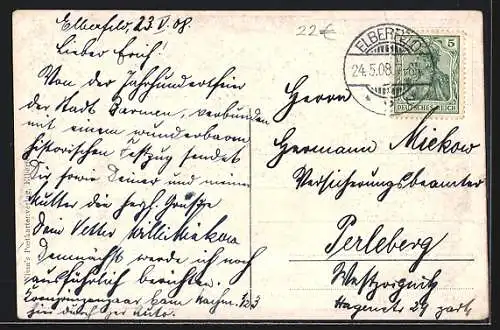 Elberfeld, 23 V 08
Lieber Erich!
Von der Jahrhundertfeier
der Stadt Barmen, verbunden
mit einem wunderbaren
historischen Festzug sendet
Dir sowie Deiner und meiner
Mutter die herzl. Grüße
Dein Vetter Willi Miekow
Demnächst werde ich noch
ausführlich berichten.
Nachm.
22€
ELBERFELD
24.5.08.
5
DEUTSCHES REICH
Herrn
Hermann Miekow
Versicherungsbeamter
Perleberg
Westprignitz
Hagenstr 24
Postkartenverlag, Elberfeld